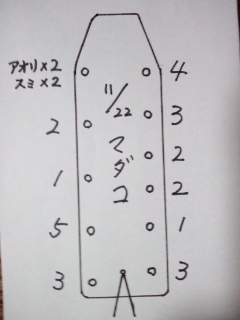 アオリ×2
スミ×2
4
11/22
2
3
マダコ
2
1
2
5
1
3
3